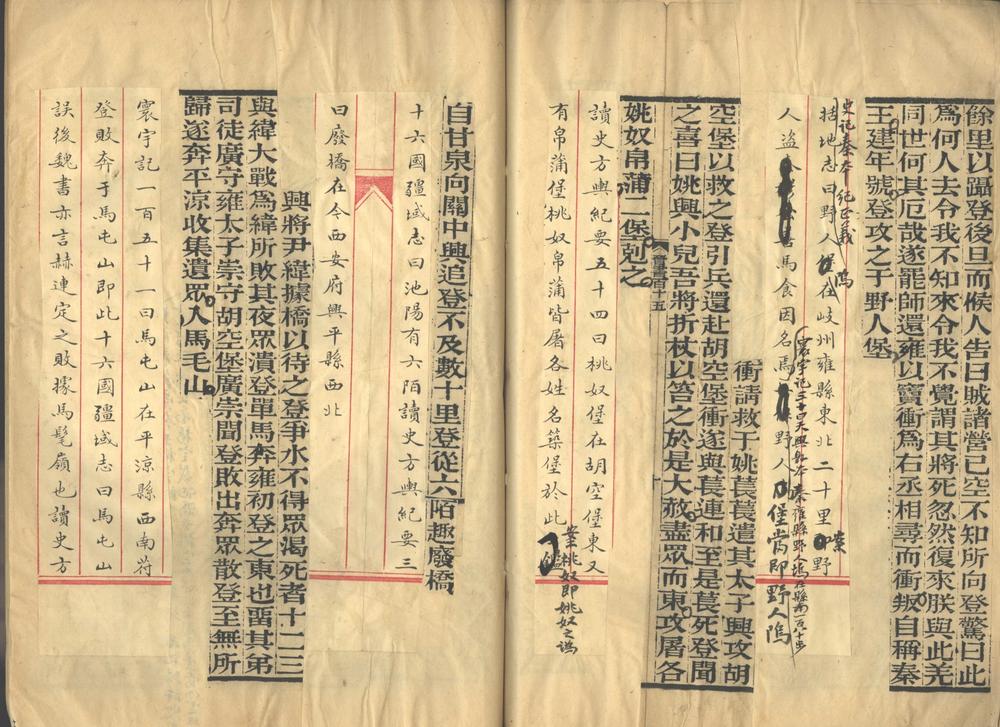 餘里以躡登後旦而候人告曰賊諸營已空不知所向登驚曰此
為何人去令我不知來令我不覺謂其將死忽然復來朕與此羌
同世何其厄哉遂罷師還雍以竇衝為右丞相尋而衝叛自稱秦
王建年號登攻之于野人堡
史記秦本紀正義
括地志曰野人塢在岐州雍縣東北二十里案野
人盜馬食因名馬野人塢當即野人隖
寰宇記三十曰天興縣本秦雍縣野人塢在縣
衝請救于姚萇萇遣其太子興攻胡
空堡以救之登引兵還赴胡空堡衝遂與萇連和至是萇死登聞
之喜曰姚興小兒吾將折杖以笞之於是大赦盡眾而東攻屠各
姚奴帛蒲二堡剋之
晉書百十五
讀史方輿紀要五十四曰桃奴堡在胡空堡東又
有帛蒲堡桃奴帛蒲皆屠各姓名築堡於此
案桃奴即姚奴之譌
自甘泉向關中興追登不及數十里登從六陌趣廢橋
十六國疆域志曰池陽有六陌讀史方輿紀要三
曰廢橋在今西安府興平縣西北
興將尹緯據橋以待之登爭水不得眾渴死者十二三
與緯大戰為緯所敗其夜眾潰登單馬奔雍初登之東也畱其弟
司徒廣守雍太子崇守胡空堡廣崇聞登敗出奔眾散登至無所
歸遂奔平涼收集遺眾入馬毛山
寰宇記一百五十一曰馬屯山在平涼縣西南苻
登敗奔于馬屯山即此十六國疆域志曰馬屯山
誤後魏書亦言赫連定之敗據馬髦嶺也讀史方